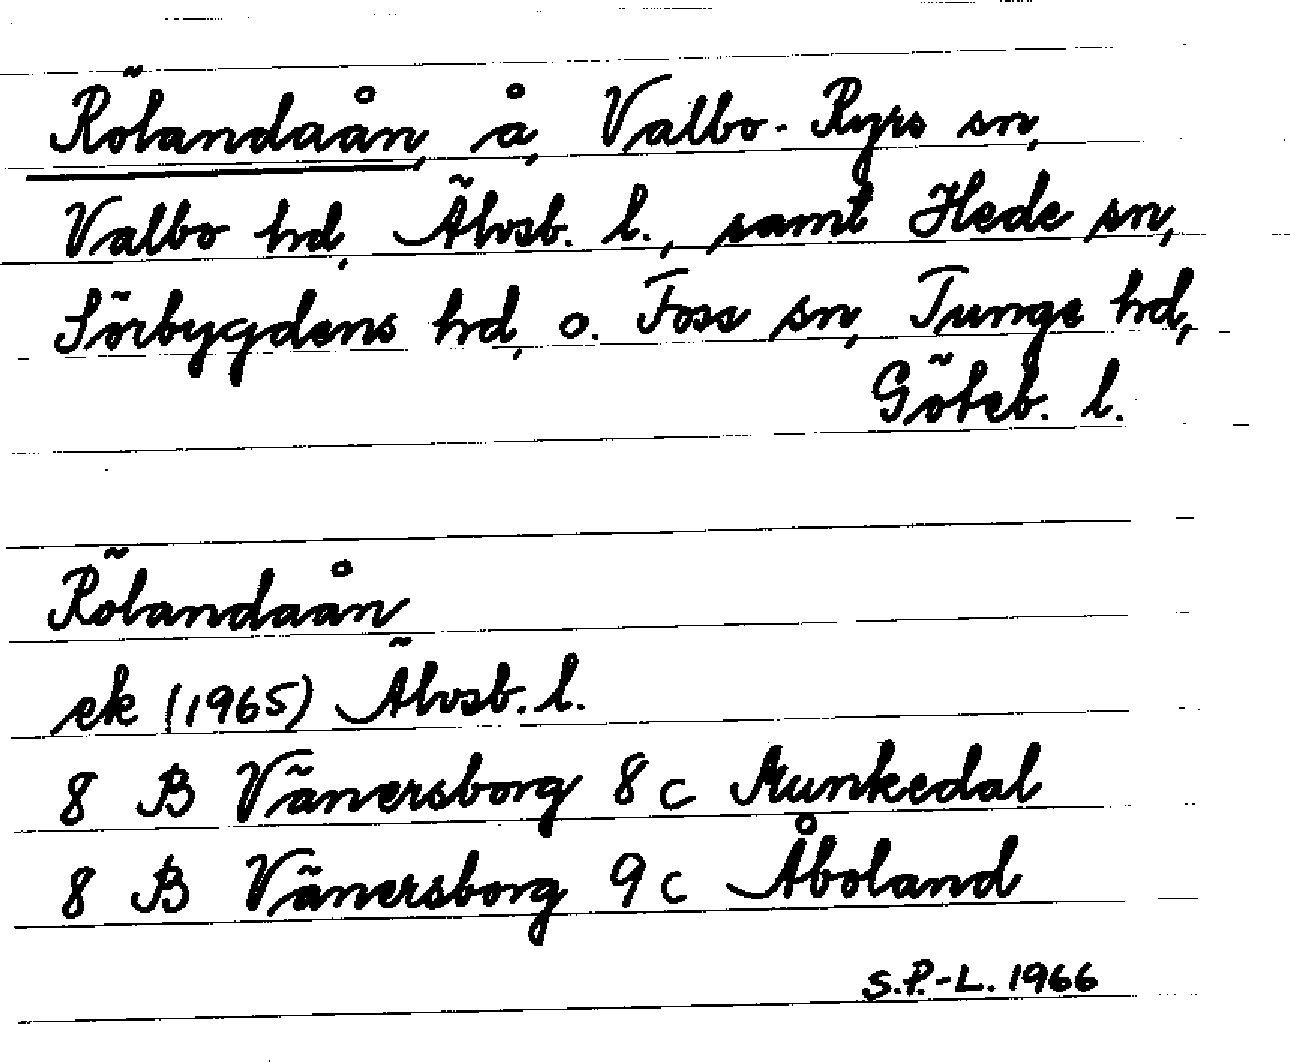 Rölandaån, å, Valbo-Ryrs sn,
Valbo hd, Älvsb. l., samt Hede sn,
Sörbygdens hd, o. Foss sn, Tunge hd,
Göteb. l.
Rölandaån
ek (1965) Älvsb. l.
8 B Vänersborg 8c Munkedal
8 B Vänersborg 9c Åboland
S.P.-L. 1966